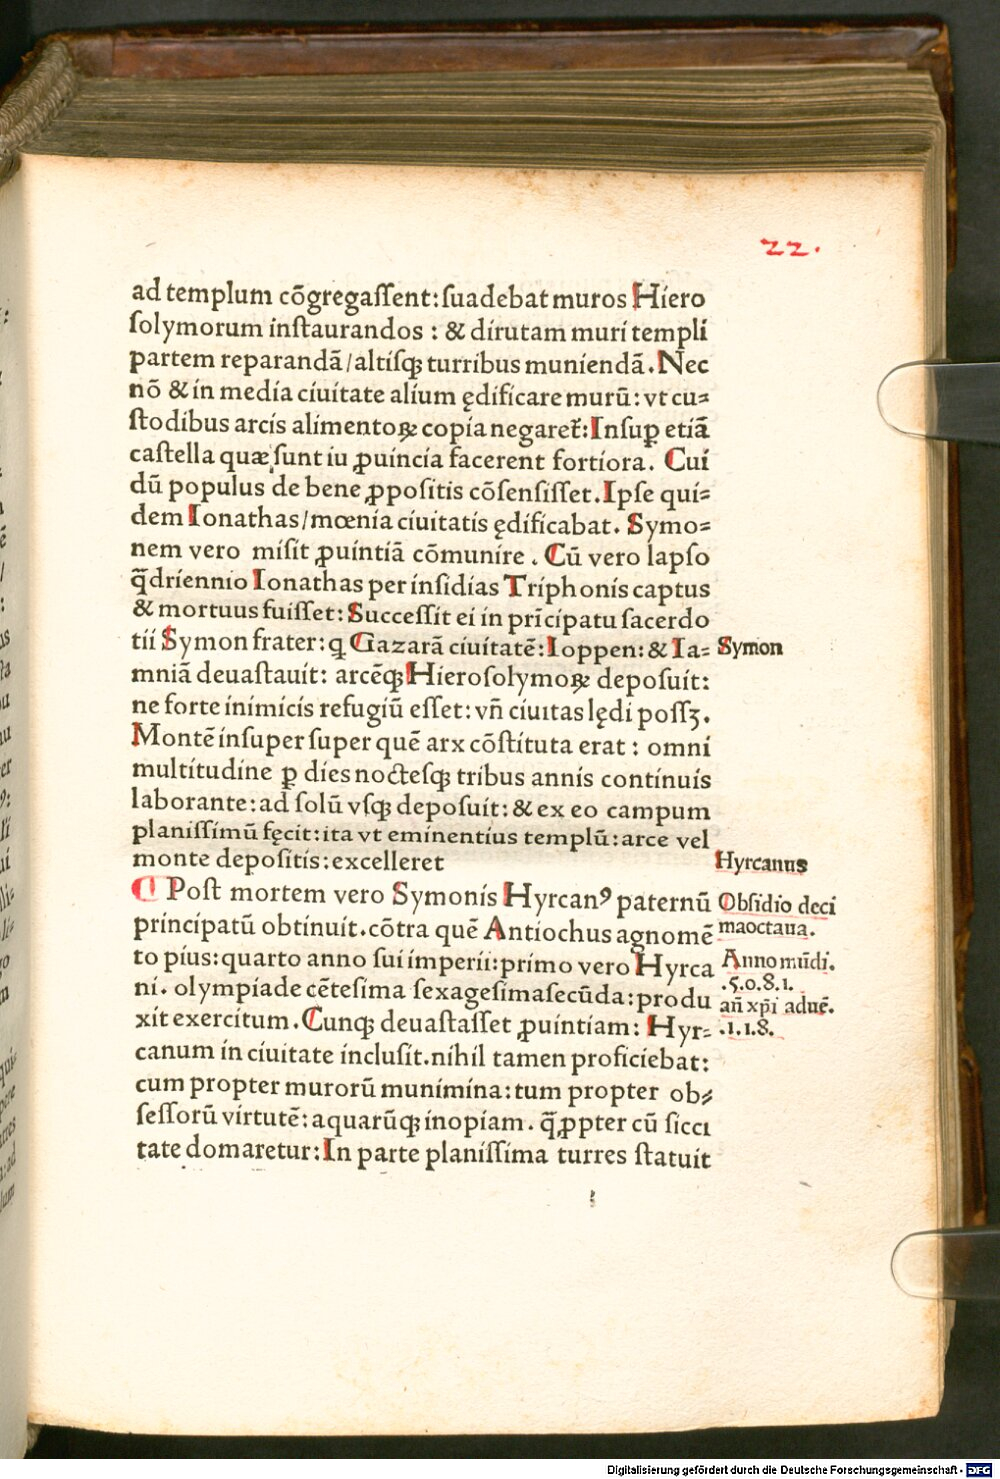 22.
ad templum cõgregaſſent: ſuadebat muros Hiero
ſolymorum inſtaurandos : & dirutam muri templi
partem reparandã/altiſq́; turribus muniendã. Nec
nõ & in media ciuitate alium ędificare murũ: vt cu⸗
ſtodibus arcis alimentoꝝ copia negaret̃: Inſuꝑ etiã
caſtella quæ ſunt iu ꝓuincia facerent fortiora. Cui
dũ populus de bene ꝓpoſitis cõſenſiſſet. Ipſe qui⸗
dem Ionathas/mœnia ciuitatis ędificabat. Symo⸗
nem vero miſit ꝓuintiã cõmunire . Cũ vero lapſo
q̃driennio Ionathas per inſidias Triphonis captus
& mortuus fuiſſet: Succeſſit ei in prĩcipatu ſacerdo
tii Symon frater: ꝗ Gazarã ciuitatẽ: Ioppen: & Ia⸗
mniã deuaſtauit: arcẽq́; Hieroſolymoꝝ depoſuit:
ne forte inimicis refugiũ eſſet: vñ ciuitas lędi poſſꝫ.
Montẽ inſuper ſuper quẽ arx cõſtituta erat : omni
multitudine ꝑ dies noctefq́; tribus annis continuis
laborante: ad ſolũ vſq́; depoſuit: & ex eo campum
planiſſimũ fęcit: ita vt eminentius templũ: arce vel
monte depoſitis: excelleret
¶ Poſt mortem vero Symonis Hyrcanꝰ paternũ
principatũ obtinuit. cõtra quẽ Antiochus agnomẽ
to pius: quarto anno ſui imperii: primo vero Hyrca
ni. olympiade cẽteſima ſexageſimaſecũda: produ
xit exercitum. Cunq́; deuaſtaſſet ꝓuintiam: Hyr⸗
canum in ciuitate incluſit. nihil tamen proficiebat:
cum propter murorũ munimina: tum propter ob⸗
ſeſſorũ virtutẽ: aquarũq́; inopiam. q̃ ꝓpter cũ ſicci
tate domaretur: In parte planiſſima turres ſtatuit
Symon
Hyrcanus
Obſidio deci
maoctaua.
Anno mũdi.
.5.0.8.1.
añ xp̃i aduẽ.
.1.1.8.
Digitalisierung gefördert durch die Deutsche Forschungsgemeinschaft - DFG